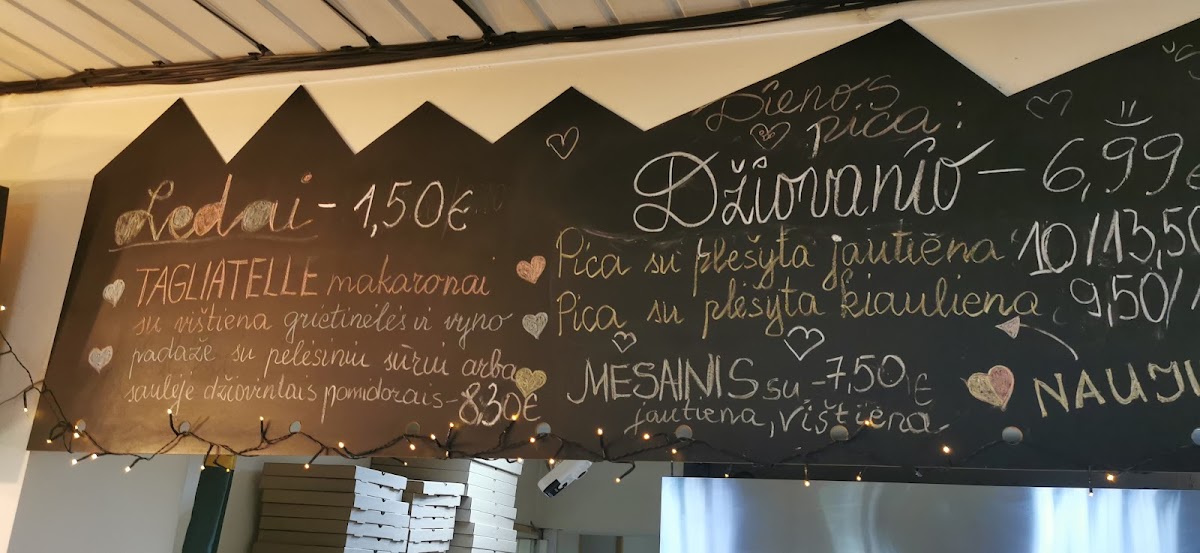 Ledai - 1,50€
TAGLIATELLE makaronai
su vištiena grietinėlės ir vyno
padaže su pelėsiniu sūriu arba
saulėje džiovintais pomidorais - 8,30€
Dienos
pica:
Džiovanio - 6,99€
Pica su plėšyta jautiena 10/13,50
Pica su plėšyta kiauliena 9,50/
MESAINIS su - 7,50€
jautiena, vištiena
NAUJI